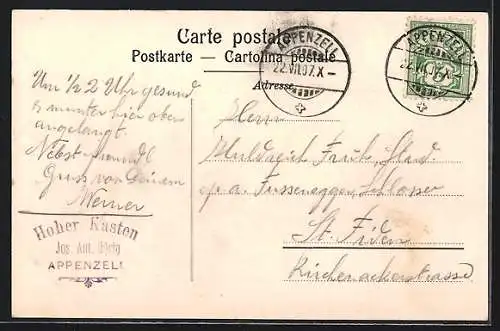 Carte postale
Postkarte — Cartolina postale
Adresse
APPENZELL
22.VII.07.X–
APPENZELL
22.VII.07.X–
Um ½ 2 Uhr gesund
& munter hier oben
angelangt.
Nebst freundl.
Gruss von Deinem
Werner
Hoher Kasten
Jos. Ant.
APPENZELL
Herrn
Stud.
p/a. Schlosser
St. Fiden
Kirchenackerstrasse